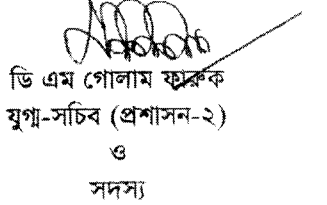 ডি এম গোলাম ফারুক
যুগ্ম-সচিব (প্রশাসন-২)
ও
সদস্য